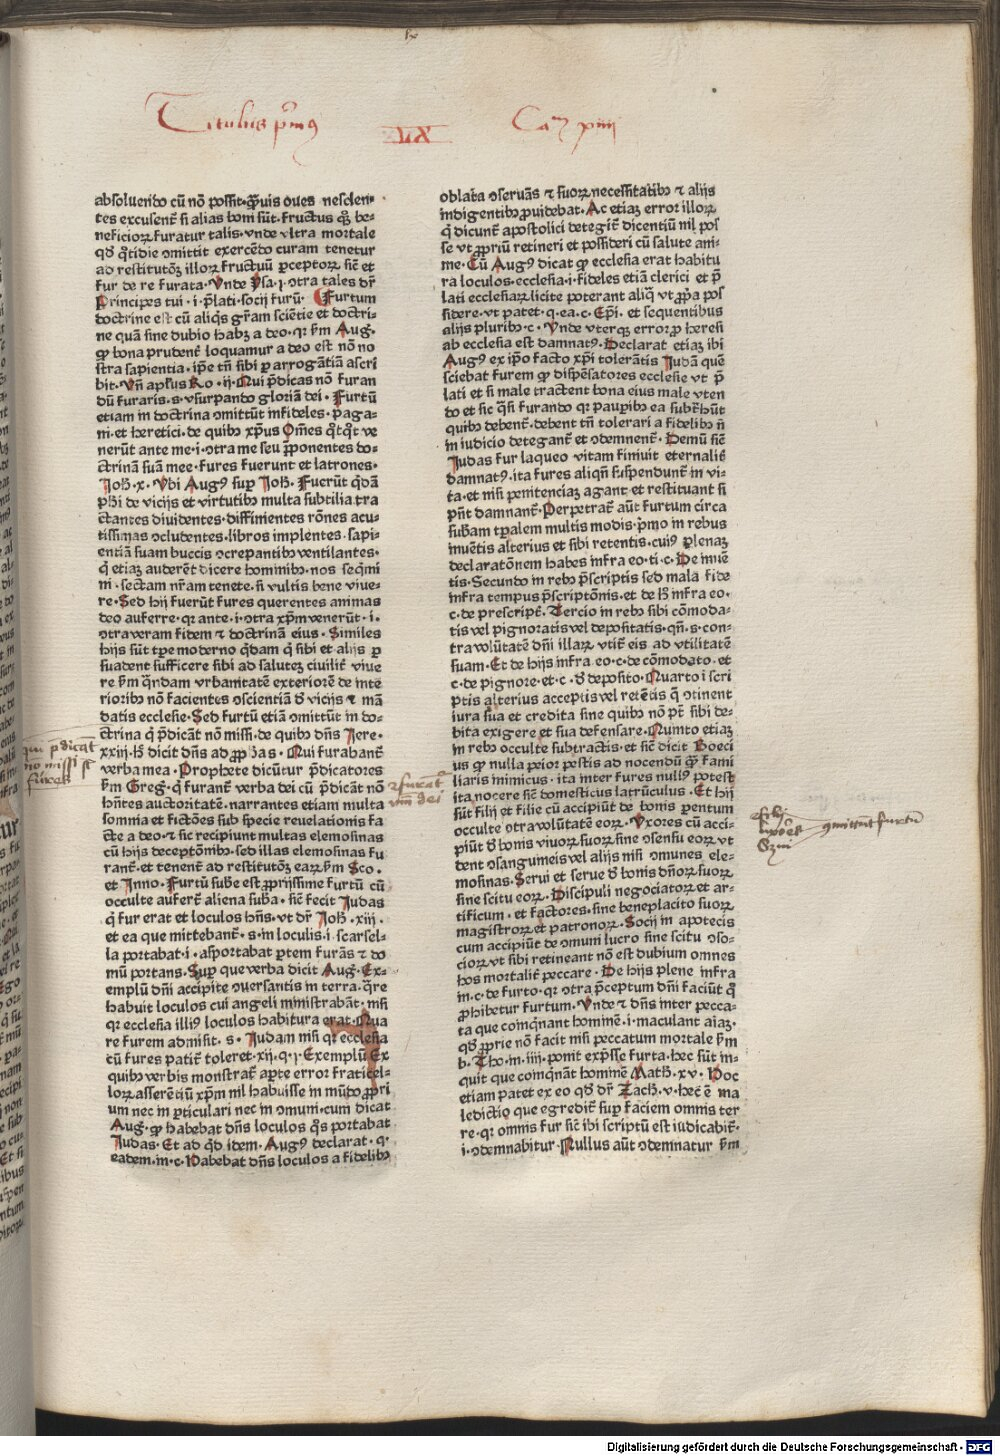 lx
Titulus p̄mꝰ
LX
Ca⁊ xiiij
absoluendo cū nō possit. q̄ꝫuis oues nescien-
tes excusent᷑ si alias boni sūt. fructus qꝫ be-
neficioꝝ furatur talis. vnde vltra mortale
qd̓ q̊tidie omittit exercēdo curam tenetur
ad restitutōꝫ illoꝝ fructuū ꝑceptoꝝ sic̄ et
fur de re furata. Vnde ysa. j. ↄtra tales dr̄
Principes tui. i. p̄lati. socij furū. Furtum
doctrine est cū aliq̊s gr̄am sciētie et doctri-
ne quā sine dubio habꝫ a deo. qr ẜm Aug.
ꝙ bona prudent᷑ loquamur a deo est nō no
stra sapientia. ipse tn̄ sibi ꝑ arrogātiā ascri
bit. Vn̄ apl̓us Ro. ij. Qui p̄dicas nō furan
dū furaris. s. vsurpando gloriā dei. Furtū
etiam in doctrina omittūt infideles. paga-
ni. et heretici. de quibꝫ xp̄us Om̄es q̊tq̊t ve
nerūt ante me. i. ↄtra me seu ꝓponentes do-
ctrinā suā mee. fures fuerunt et latrones.
Joh̄. x. Vbi Augꝰ suꝑ Joh̄. Fuerūt qdā
ph̄i de vicijs et virtutibꝫ multa subtilia tra
ctantes diuidentes. diffinientes rōnes acu-
tissimas ↄcludentes. libros implentes. sapi-
entiā suam buccis ↄcrepantibꝫ ventilantes.
q̄ etiaꝫ auderēt dicere hominibꝫ. nos seq̄mi
ni. sectam nr̄am tenete. si vultis bene viue-
re. Sed hij fuerūt fures querentes animas
deo auferre. qr ante. i. ↄtra xp̄m venerūt. i.
ↄtra veram fidem ⁊ doctrinā eius. Similes
hijs sūt tꝑe moderno qdam q̄ sibi et alijs ꝑ
suadent sufficere sibi ad saluteꝫ ciuilit᷑ viue
re ẜm q̄ndam vrbanitatē exteriorē de inte
rioribꝫ nō facientes ↄscientiā d̓ vicijs ⁊ mā
datis ecclesie. Sed furtū etiā ↄmittūt in do-
ctrina q̄ p̄dicāt nō missi. de quibꝫ dn̄s Jere.
xxiij. h̄ dicit dn̄s ad ꝓphꝫas. Qui furabant᷑
verba mea. Prophete dicūtur p̄dicatores
ẜm Greg. q̄ furant᷑ verba dei cū p̄dicāt nō
hn̄tes auctoritatē. narrantes etiam multa
somnia et fictōes sub specie reuelationis fa
cte a deo. ⁊ sic recipiunt multas elemosinas
cū hijs deceptōnibꝫ. sed illas elemosinas fu
rant᷑. et tenent᷑ ad restitutōꝫ eaꝝ ẜm Sco.
et Inno. Furtū sube est ꝓprijssime furtū cū
occulte aufert᷑ aliena suba. sic̄ fecit Judas
q̄ fur erat et loculos hn̄s. vt dr̄ Joh̄. xiij.
et ea que mittebant᷑. s. in loculis. i. scarsel-
la portabat. i. asportabat ꝑtem furās ⁊ do
mū portans. Suꝑ que verba dicit Aug. Ex-
emplū dn̄i accipite ↄuersantis in terra. q̄re
habuit loculos cui angeli ministrabāt. nisi
qr ecclesia illiꝰ loculos habitura erat. Qua
re furem admisit. s. Judam nisi qr ecclesia
cū fures patit᷑ toleret. xij. q. j. Exemplū. Ex
quibꝫ verbis monstrat᷑ aꝑte error fraticel-
loꝝ asserētiū xp̄m nil habuisse in mūdo ꝓpri
um nec in ꝑticulari nec in ↄmuni. cum dicat
Aug. ꝙ habebat dn̄s loculos q̊s portabat
Judas. Et ad qd̓ idem. Augꝰ declarat. q.
eadem. in. c. Habebat dn̄s loculos a fidelibꝫ
oblata ↄseruās ⁊ suoꝝ necessitatibꝫ ⁊ alijs
indigentibꝫ ꝓuidebat. Ac etiaꝫ error illoꝝ
q̄ dicunt᷑ apostolici detegit᷑ dicentiū nil pos
se vt ꝓpriū retineri et possideri cū salute ani-
me. Cū Augꝰ dicat ꝙ ecclesia erat habitu
ra loculos. ecclesia. i. fideles etiā clerici et p̄
lati ecclesiaꝝ licite poterant aliq̄ vt ꝓpa pos
sidere. vt patet. q. ea. c. Ep̄i. et sequentibus
alijs pluribꝫ. c. Vnde vterqꝫ error ꝓ heresi
ab ecclesia est damnatꝰ. Declarat etiaꝫ ibi
Augꝰ ex ip̄o facto xp̄i tolerātis Judā quē
sciebat furem ꝙ disp̄esatores ecclesie vt p̄
lati et si male tractent bona eius male vten
do et sic q̄si furando qr pauꝑibꝫ ea subt̄hūt
quibꝫ debent᷑. debent tn̄ tolerari a fidelibꝫ n̄
in iudicio detegant᷑ et ↄdemnent᷑. Demū sic̄
Judas fur laqueo vitam finiuit eternalit᷑
damnatꝰ. ita fures aliqn̄ suspendunt᷑ in vi-
ta. et nisi penitenciaꝫ agant et restituant si
pn̄t damnant᷑. Perpetrat᷑ aūt furtum circa
subam tꝑalem multis modis. p̄mo in rebus
inuētis alterius et sibi retentis. cuiꝰ plenaꝫ
declaratōnem habes infra eo. ti. c. De inuē
tis. Secundo in rebꝫ p̄scriptis sed mala fide
infra tempus p̄scriptōnis. et de h̄ infra eo.
c. de prescript᷑. Tercio in rebꝫ sibi cōmoda-
tis vel pignoratis vel depositatis. qn̄. s. con-
tra volūtatē dn̄i illaꝝ vtit᷑ eis ad vtilitatē
suam. Et de hijs infra eo. c. de cōmodato. et
c. de pignore. et. c. d̓ deposito. Quarto i scri
ptis alterius acceptis vel retētis q̄ ↄtinent
iura sua et credita sine quibꝫ nō pt̄ sibi de-
bita exigere et sua defensare. Quinto etiaꝫ
in rebꝫ occulte subtractis. et sic̄ dicit Boeci
us ꝙ nulla peior pestis ad nocendū q̄ꝫ fami
liaris inimicus. ita inter fures nullꝰ potest
ita nocere sic̄ domesticus latrūculus. Et hij
sūt filij et filie cū accipiūt de bonis ꝑentum
occulte ↄtra volūtatē eoꝝ. Vxores cū acci-
piūt d̓ bonis viuoꝝ suoꝝ sine ↄsensu eoꝝ vt
dent ↄsanguineis vel alijs nisi ↄmunes ele-
mosinas. Serui et serue d̓ bonis dn̄oꝝ suoꝝ
sine scitu eoꝝ. Discipuli negociatoꝝ et ar-
tificum. et factores. sine beneplacito suoꝝ
magistroꝝ et patronoꝝ. Socij in apotecis
cum accipiūt de ↄmuni lucro sine scitu ↄso-
cioꝝ vt sibi retineant nō est dubium omnes
hos mortalit᷑ peccare. De hijs plene infra
in. c. de furto. qr ↄtra p̄ceptum dn̄i faciūt q̄
ꝓhibetur furtum. Vnde ⁊ dn̄s inter pecca-
ta que coinqnant hominē. i. maculant aīaꝫ.
qd̓ ꝓprie nō facit nisi peccatum mortale ẜm
b. Tho. in. iiij. ponit exp̄sse furta. hec sūt in-
quit que coinqnāt hominē Math̄. xv. Hoc
etiam patet ex eo qd̓ dr̄ Zach̄. v. hec̄ ē ma
ledictio que egredit᷑ suꝑ faciem omnis ter
re. qr omnis fur sic̄ ibi scriptū est iudicabit᷑.
i. ↄdemnabitur. Nullus aūt ↄdemnatur ẜm
qui p̄dicāt
nō missi st̄
fures
⁊ furāt᷑
vm̄ dei
filij
vxores
ↄmittūt furtū
Serui
Digitalisierung gefördert durch die Deutsche Forschungsgemeinschaft - DFG